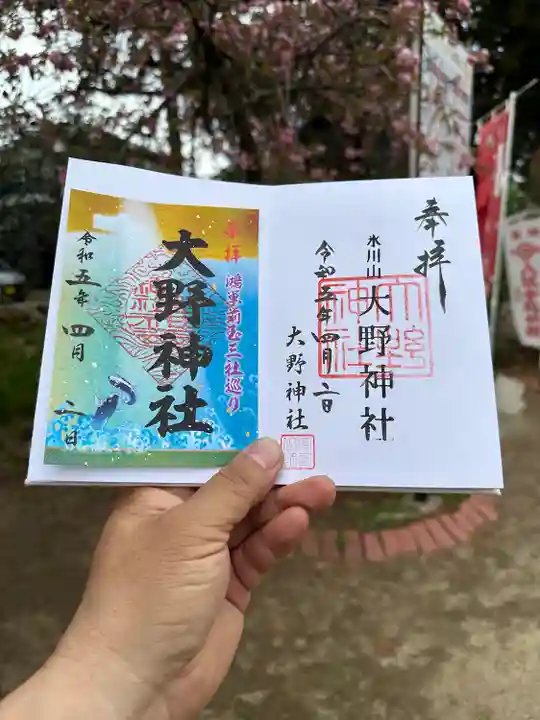 奉拝
氷川山
大野神社
令和五年四月二日
大野神社
大野神社
奉拝
三社巡り
大野神社
令和五年
四月
二日